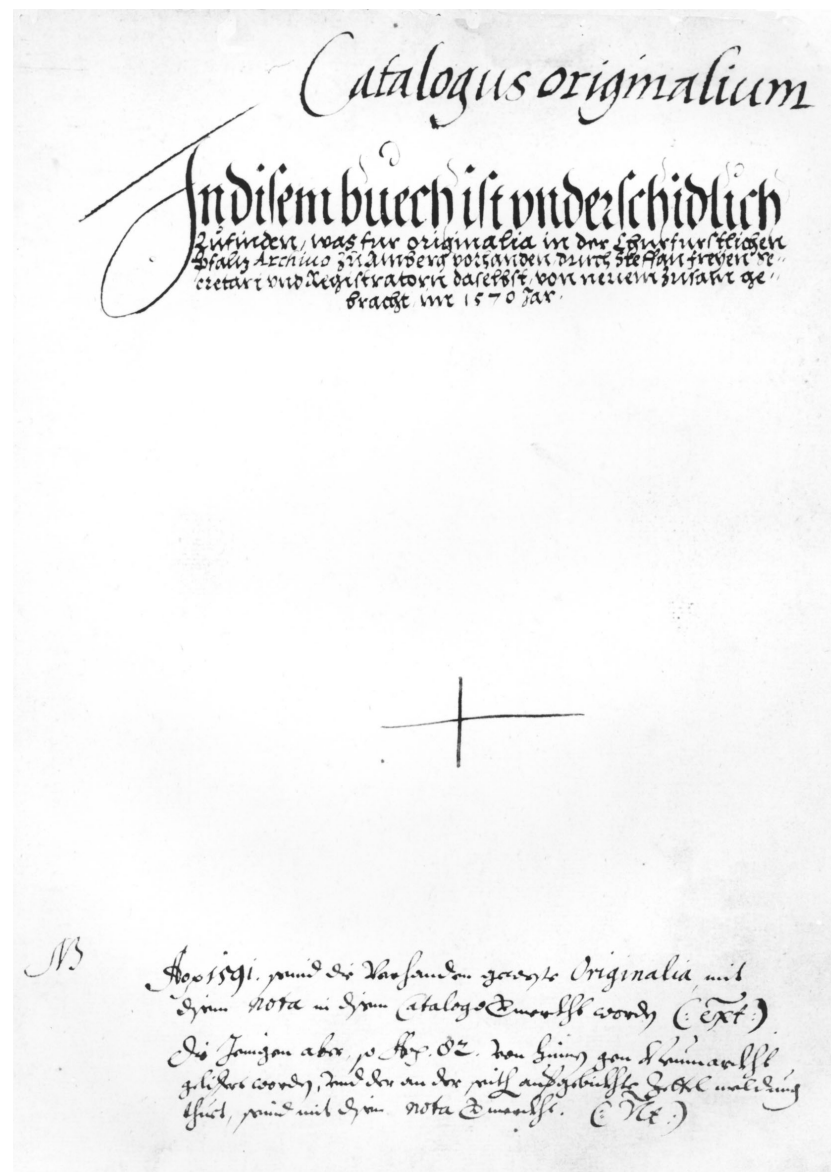 Catalogus originalium
In disem buech ist vnderschidlich
zufinden, was fur originalia in der Churfurstlichen
Pfaltz Archiuo zu Amberg vorhanden durch Steffan freyen Se-
cretari vnd Registratorn daselbst, von neuem zusam ge-
bracht im 1570 Jar.
NB
1591. seind die Vorhanden Originalia mit
disem nota in disem Catalogo worden
Die Jenigen aber, so 82. von hinnen gen Neumarckht
gelifert worden, vnd der an der seith Zettel meldung
thuet, seind mit disem nota